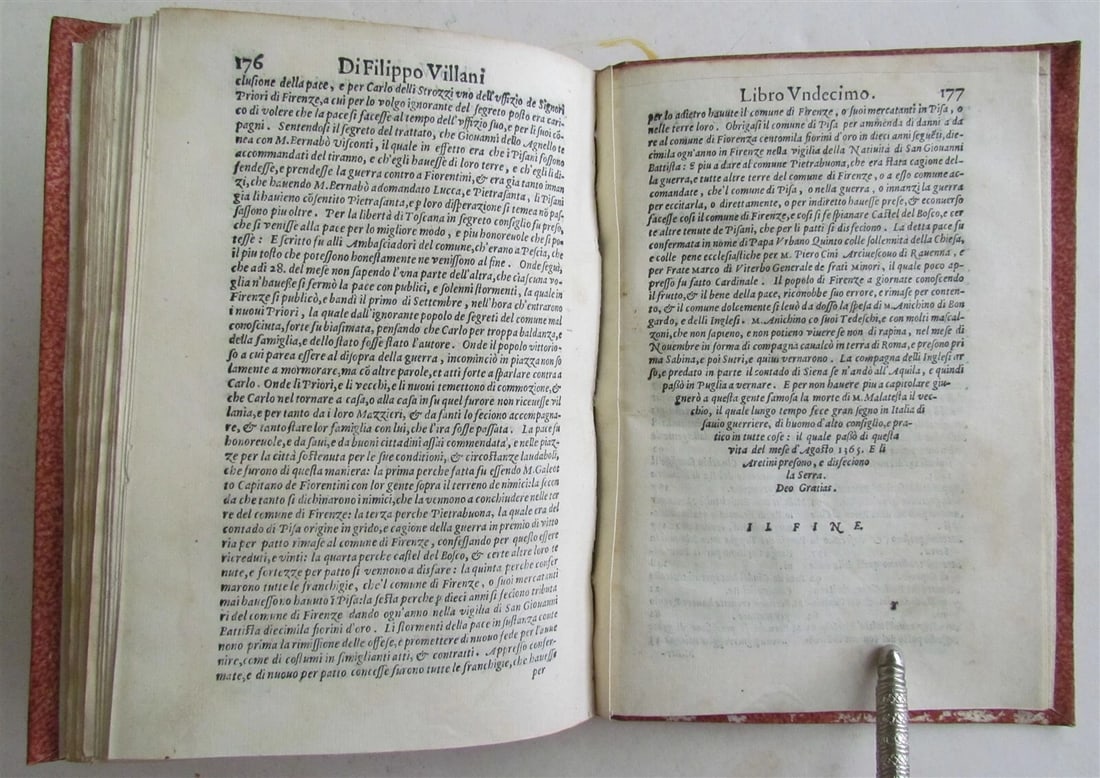 176 Di Filippo Villani
clusione della pace, e per Carlo delli Strozzi uno dell'uffizio de Signori
Priori di Firenze, a cui per lo volgo ignorante del segreto posto era cari-
co di volere che la pace si facesse al tempo dell'uffizio suo, e per li suoi cō
pagni. Sentendosi il segreto del trattato, che Giouanni dello Agnello te
nea con M. Bernabò Visconti, il quale in effetto era che i Pisani fossono
accommandati del tiranno, e ch'egli hauesse di loro terre, e ch'egli li di-
fendesse, e prendesse la guerra contro a Fiorentini, & era gia tanto innan
zi, che hauendo M. Bernabò adomandato Lucca, e Pietrasanta, li Pisani
gia li hauieno cōsentito Pietrasanta, e p loro disperatione si temea nō pas-
sassono piu oltre. Per la libertà di Toscana in segreto consiglio fu preso,
che si venisse alla pace per lo migliore modo, e piu honoreuole che si po-
tesse: E scritto fu alli Ambasciadori del comune, ch'erano a Pescia, che
il piu tosto che potessono honestamente ne venissono al fine. Onde seguì,
che adì 28. del mese non sapendo l'vna parte dell'altra, che ciascuna vo-
glia n'hauesse si fermò la pace con publici, e solenni stormenti, la quale in
Firenze si publicò, e bandì il primo di Settembre, nell'hora ch'entrarono
i nuoui Priori, la quale dall'ignorante popolo de segreti del comune mal
conosciuta, forte fu biasimata, pensando che Carlo per troppa baldanza, e
della famiglia, e dello stato fosse stato l'autore. Onde il popolo vittorio-
so a cui parea essere al disopra della guerra, incominciò in piazza non so
lamente a mormorare, ma cō altre parole, et atti forte a sparlare contra a
Carlo. Onde li Priori, e li vecchi, e li nuoui temettono di commozione, &
che Carlo nel tornare a casa, o alla casa in su quel furore non riceuesse vil
lania, e per tanto da i loro Mazzieri, & da fanti lo feciono accompagna-
re, & tanto stare lor famiglia con lui, che l'ira fosse passata. La pace fu
honoreuole, e da saui, e da buoni cittadini assai commendata, e nelle piaz-
ze per la città sostenuta per le sue condizioni, & circostanze laudaboli,
che furono di questa maniera: la prima perche fatta fu essendo M. Galeot
to Capitano de Fiorentini con lor gente sopra il terreno de nimici: la secon
da che tanto si dichinarono i nimici, che la vennono a conchiudere nelle ter
re del comune di Firenze: la terza perche Pietrabuona, la quale era del
contado di Pisa origine in grido, e cagione della guerra in premio di vitto
ria per patto rimase al comune di Firenze, confessando per questo essere
ricreduti, e vinti: la quarta perche castel del Bosco, & certe altre loro te
nute, e fortezze per patto si vennono a disfare: la quinta perche confer
marono tutte le franchigie, che'l comune di Firenze, o suoi mercatanti
mai hauessono hauuto ī Pisa: la sesta perche p dieci anni si feciono tributa
ri del comune di Firenze dando ogn'anno nella vigilia di San Giouanni
Battista diecimila fiorini d'oro. Li stormenti della pace in sustanza conte
nono prima la rimissione delle offese, e promettere di nuouo fede per l'auue
nire, come di costumi in simiglianti atti, & contratti. Appresso confer-
mate, e di nuouo per patto concesse furono tutte le franchigie, che hauesse
per
Libro Vndecimo. 177
per lo adietro hauute il comune di Firenze, o suoi mercatanti in Pisa, o
nelle terre loro. Obrigasi il comune di Pisa per ammenda di danni a da
re al comune di Fiorenza centomila fiorini d'oro in dieci anni segueti, die-
cimila ogn'anno in Firenze nella vigilia della Natiuità di San Giouanni
Battista: E piu a dare al comune Pietrabuona, che era stata cagione del-
la guerra, e tutte altre terre del comune di Firenze, o a esso comune ac-
comandate, che'l comune di Pisa, o nella guerra, o innanzi la guerra
per eccitarla, o direttamente, o per indiretto hauesse prese, & econuerso
facesse così il comune di Firenze, e così si fe spianare Castel del Bosco, e cer
te altre tenute de Pisani, che per li patti si disfeciono. La detta pace fu
confermata in nome di Papa Vrbano Quinto colle sollennità della Chiesa,
e colle pene ecclesiastiche per M. Piero Cini Arciuescouo di Rauenna, e
per Frate Marco di Viterbo Generale de frati Minori, il quale poco ap-
presso fu fatto Cardinale. Il popolo di Firenze a giornate conoscendo
il frutto, & il bene della pace, riconobbe suo errore, e rimase per conten-
to, & il comune dolcemente si leuò da dosso la spesa di M. Anichino di Bon
gardo, e delli Inglesi. M. Anichino co suoi Tedeschi, e con molti mascal-
zoni, che non sapieno, e non potieno viuere se non di rapina, nel mese di
Nouembre in forma di compagna caualcò in terra di Roma, e presono pri
ma Sabina, e poi Sutri, e quiui vernarono. La compagna delli Inglesi ar
so, e predato in parte il contado di Siena se n'andò all'Aquila, e quindi
passò in Puglia a vernare. E per non hauere piu a capitolare giu-
gnerò a questa gente famosa la morte di M. Malatesta il vec-
chio, il quale lungo tempo fece gran segno in Italia di
sauio guerriere, di huomo d'alto consiglio, e pra-
tico in tutte cose: il quale passò di questa
vita del mese d'Agosto 1365. E li
Aretini presono, e disfeciono
la Serra.
Deo Gratias.
IL FINE